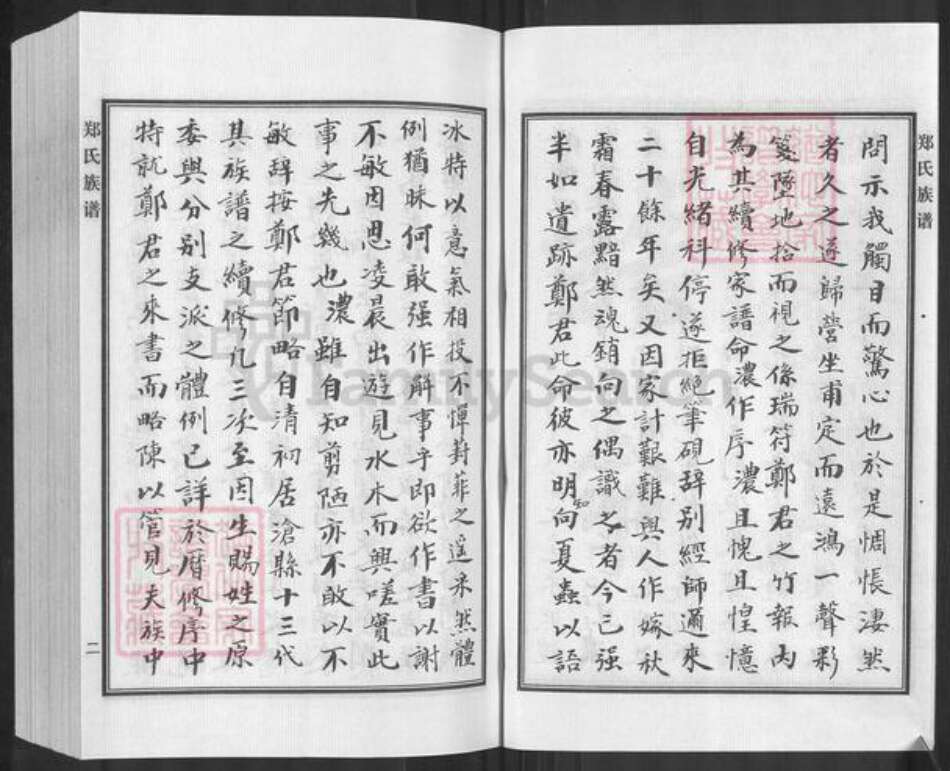 郑氏族谱
問示我觸目而驚心也於是惆悵淒然
者久之遂歸營坐甫定而遠鴻一聲彩
箋墜地拾而視之係瑞符鄭君之竹報內
為其續修家譜命濃作序濃且愧且惶憶
自光緒科停遂拒絕筆硯辞别經師邇來
二十餘年矣又因家計艱難與人作嫁秋
霜春露黯然魂銷向之偶識之者今已强
半如遺跡鄭君此命彼亦明知向夏蟲以語
冰特以意氣相投不憚葑菲之遥采然體
例猶昧何敢强作解事乎即欲作書以謝
不敏因思凌晨出遊見水木而興嗟實此
事之先幾也濃雖自知剪陋亦不敢以不
敏辞按鄭君節略自清初居滄縣十三代
其族譜之續修凡三次至因生賜姓之原
委與分别支派之體例已詳於厝修序中
特就鄭君之來書而略陳以管見夫族中
郑氏族谱
二
FamilySearch